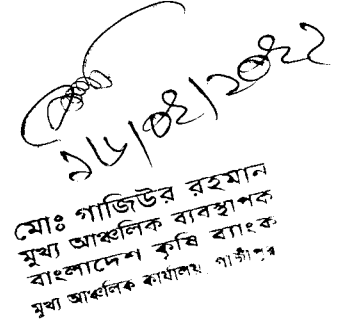 ১৮/০২/২০২২
মোঃ গাজিউর রহমান
মুখ্য আঞ্চলিক ব্যবস্থাপক
বাংলাদেশ কৃষি ব্যাংক
মুখ্য আঞ্চলিক কার্যালয়, গাজীপুর